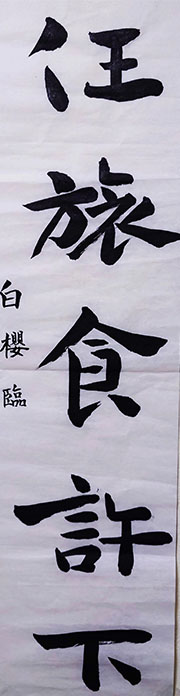 任旅食許下
白櫻臨